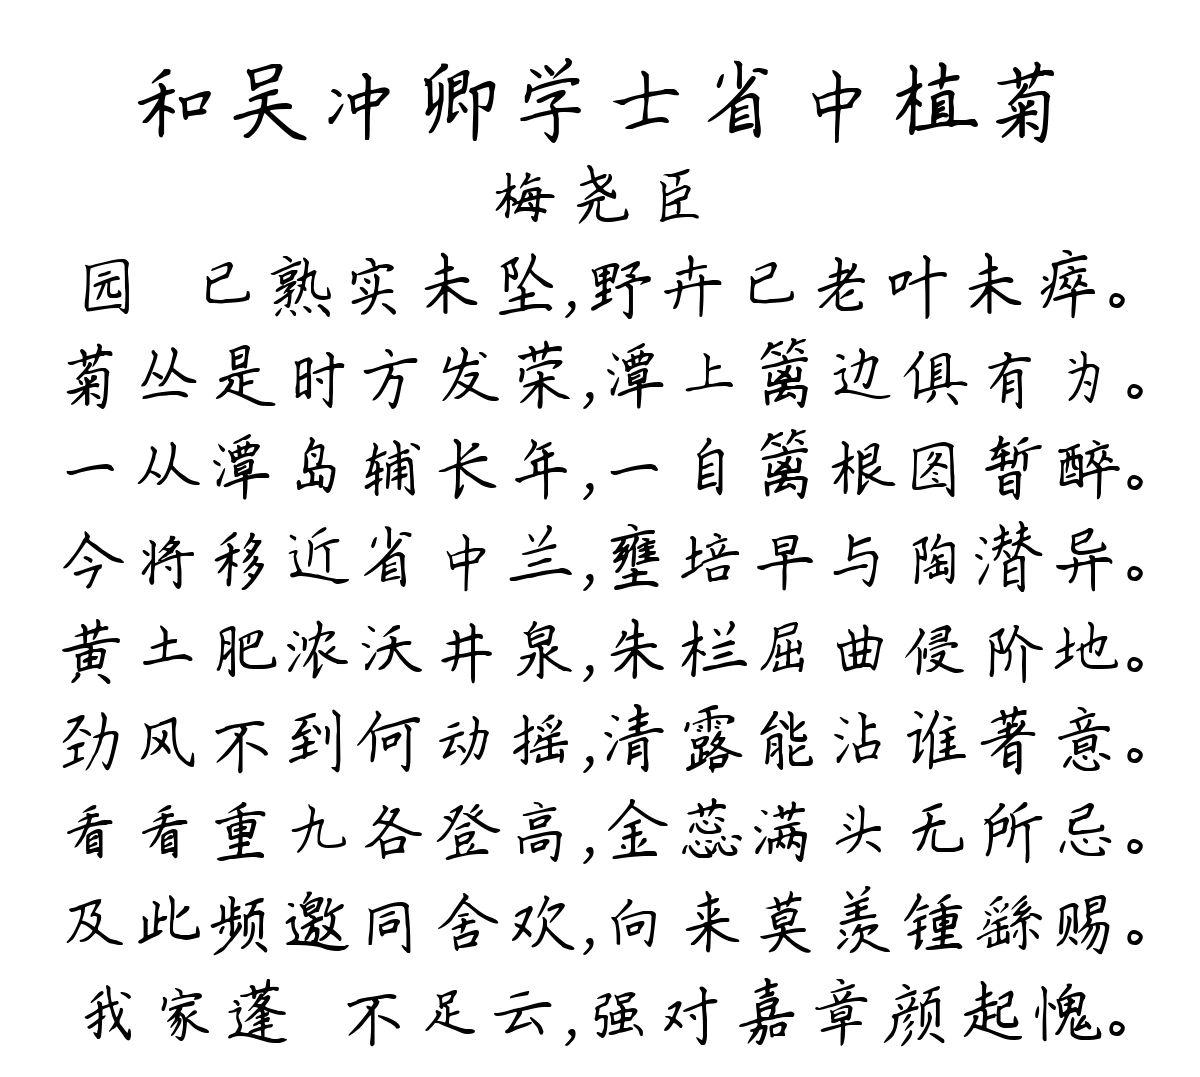 和吴冲卿学士省中植菊
梅尧臣
园 已熟实未坠,野卉已老叶未瘁。
菊丛是时方发荣,潭上篱边俱有为。
一从潭岛辅长年,一自篱根图暂醉。
今将移近省中兰,壅培早与陶潜异。
黄土肥浓沃井泉,朱栏屈曲侵阶地。
劲风不到何动摇,清露能沾谁著意。
看看重九各登高,金蕊满头无所忌。
及此频邀同舍欢,向来莫羡锺繇赐。
我家蓬 不足云,强对嘉章颜起愧。